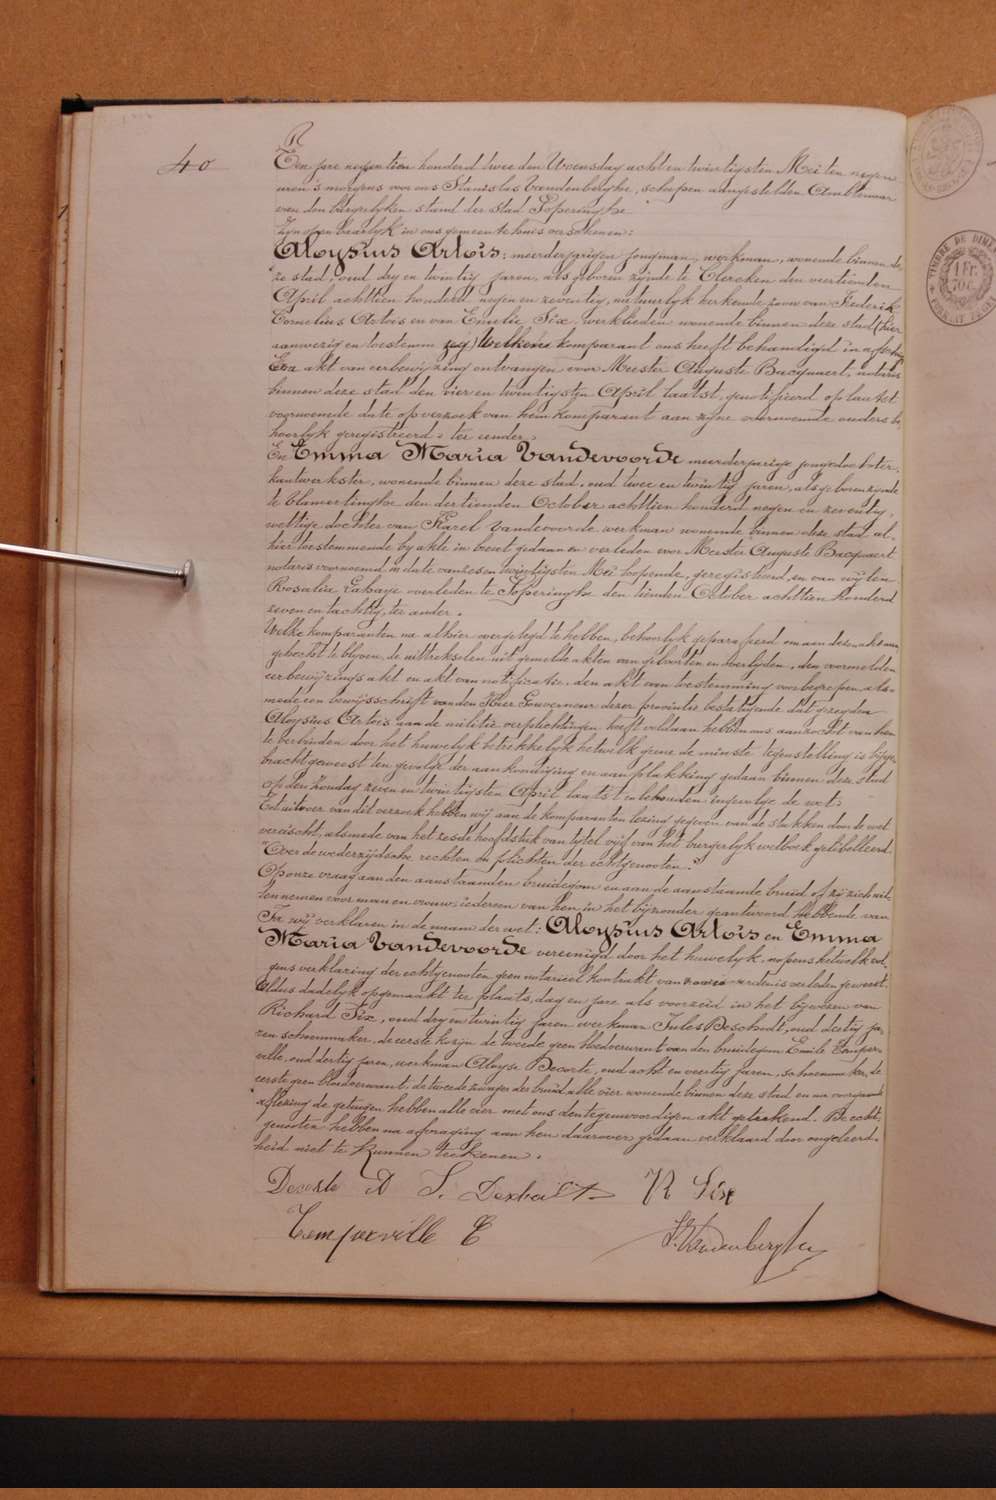 40
Een jare negentien honderd twee den Woensdag acht en twintigsten Mei ten negen
uren 's morgens voor ons Stanislas Vandenberghe, schepen aangestelden Ambtenaar
van den burgerlyken stand der stad Poperinghe
Zyn openbaarlyk in ons gemeentehuis verschenen:
Aloysius Artois, meerderjarigen jongman, werkman, wonende binnen de-
ze stad, oud dry en twintig jaren, als geboren zynde te Clercken den veertienden
April achttien honderd negen en zeventig, natuurlyk herkende zoon van Frederik
Cornelius Artois en van Emelie Six, werklieden wonende binnen deze stad (hier
aanwezig en toestemmend) Welken komparant ons heeft behandigd in
akt van eerbewyzing ontvangen voor Meester Auguste Bacquaert, notaris
binnen deze stad den vier en twintigsten April laatst, genotifieerd op laatst
voornoemde date op verzoek van hem komparant aan zyne voornoemde ouders be-
hoorlyk geregistreerd ter eender
En Emma Maria Vandevoorde meerderjarige jongedochter,
kantwerkster, wonende binnen deze stad, oud twee en twintig jaren, als geboren zynde
te Vlamertinghe den dertienden October achttien honderd negen en zeventig,
wettige dochter van Karel Vandevoorde werkman wonende binnen deze stad al-
hier toestemmende by akte in brevet gedaan en verleden voor Meester Auguste Bacquaert
notaris voornoemd in date van zes en twintigsten Mei loopende, geregistreerd, en van wylen
Rosalie Lahaye overleden te Poperinghe den tienden October achttien honderd
zeven en tachtig, ter ander.
Welke komparanten na alhier overgelegd te hebben, behoorlyk geparapheerd om aan dezen akt aan-
gehecht te blyven, de uittrekselen uit gemelde akten van geboorten en overlyden, den voormelden
eerbewyzings akt en akt van notificatie, den akt van toestemming voorbegrepen, als-
mede een bewysschrift van den Heer Gouverneur dezer provintie bestatigende dat gezegden
Aloysius Artois aan de militie verplichtingen heeft voldaan hebben ons aanzocht van hen
te verbinden door het huwelyk betrekkelyk hetwelk geene de minste tegenstelling is bygе-
bracht geweest ten gevolge der aankondiging en aanplakking gedaan binnen deze stad
op den Zondag zeven en twintigsten April laatst en behouden ingevolge de wet.
Tot uitvoer van dit verzoek hebben wy aan de komparanten lezing gegeven van de stukken door de wet
vereischt, alsmede van het zesde hoofdstuk van tytel vyf van het burgerlyk wetboek gelibelleerd
"Over de wederzydsche rechten en plichten der echtgenooten."
Op onze vraag aan den aanstaanden bruidegom en aan de aanstaande bruid of zy zich wil-
len nemen voor man en vrouw, iedereen van hen in het byzonder geantwoord hebbende van
Ja, wy verklaren in de naam der wet: Aloysius Artois en Emma
Maria Vandevoorde vereenigd door het huwelyk, nopens hetwelk vol-
gens verklaring der echtgenooten geen notarieel kontrakt van voorwaardenis verleden geweest.
Aldus dadelyk opgemaakt ter plaats, dag en jare als voorzeid in het bywezen van
Richard Six, oud dry en twintig jaren werkman Jules Deschodt, oud dertig ja-
ren schoenmaker, de eerste kozyn de tweede geen bloedverwant van den bruidegom Emile Temper-
ville, oud dertig jaren, werkman Aloyse Decorte, oud acht en veertig jaren, schoenmaker, de
eerste geen bloedverwant, de tweede zwager der bruid, alle vier wonende binnen deze stad en na voorgaande
aflezing de getuigen hebben alle vier met ons den tegenwoordigen akt geteekend. De echt-
genooten hebben na afvraging aan hen daarover gedaan verklaard door ongeleerd-
heid niet te kunnen teekenen.
Decorte A J. Dexhoidt R Six
Temperville E S. Vandenberghe
TIMBRE DE DIME
1 Fr.
70 C.